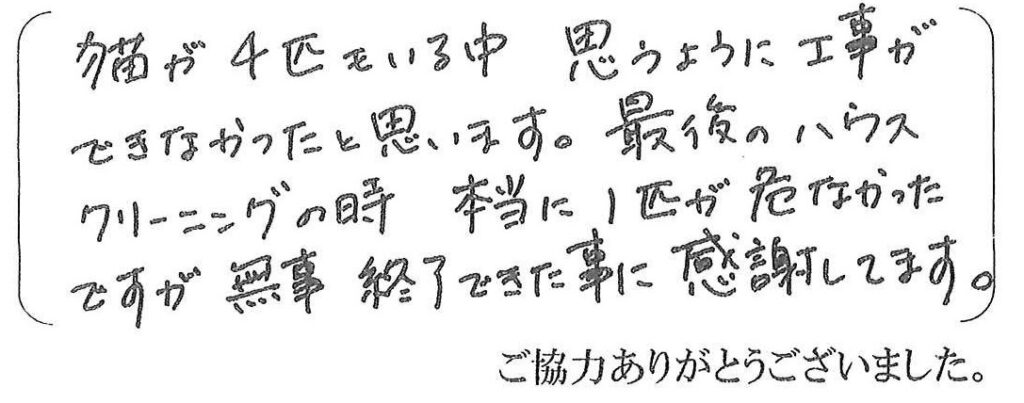 猫が4匹もいる中 思うように工事が
できなかったと思います。最後のハウス
クリーニングの時 本当に1匹が危なかった
ですが無事終了できた事に感謝してます。
ご協力ありがとうございました。